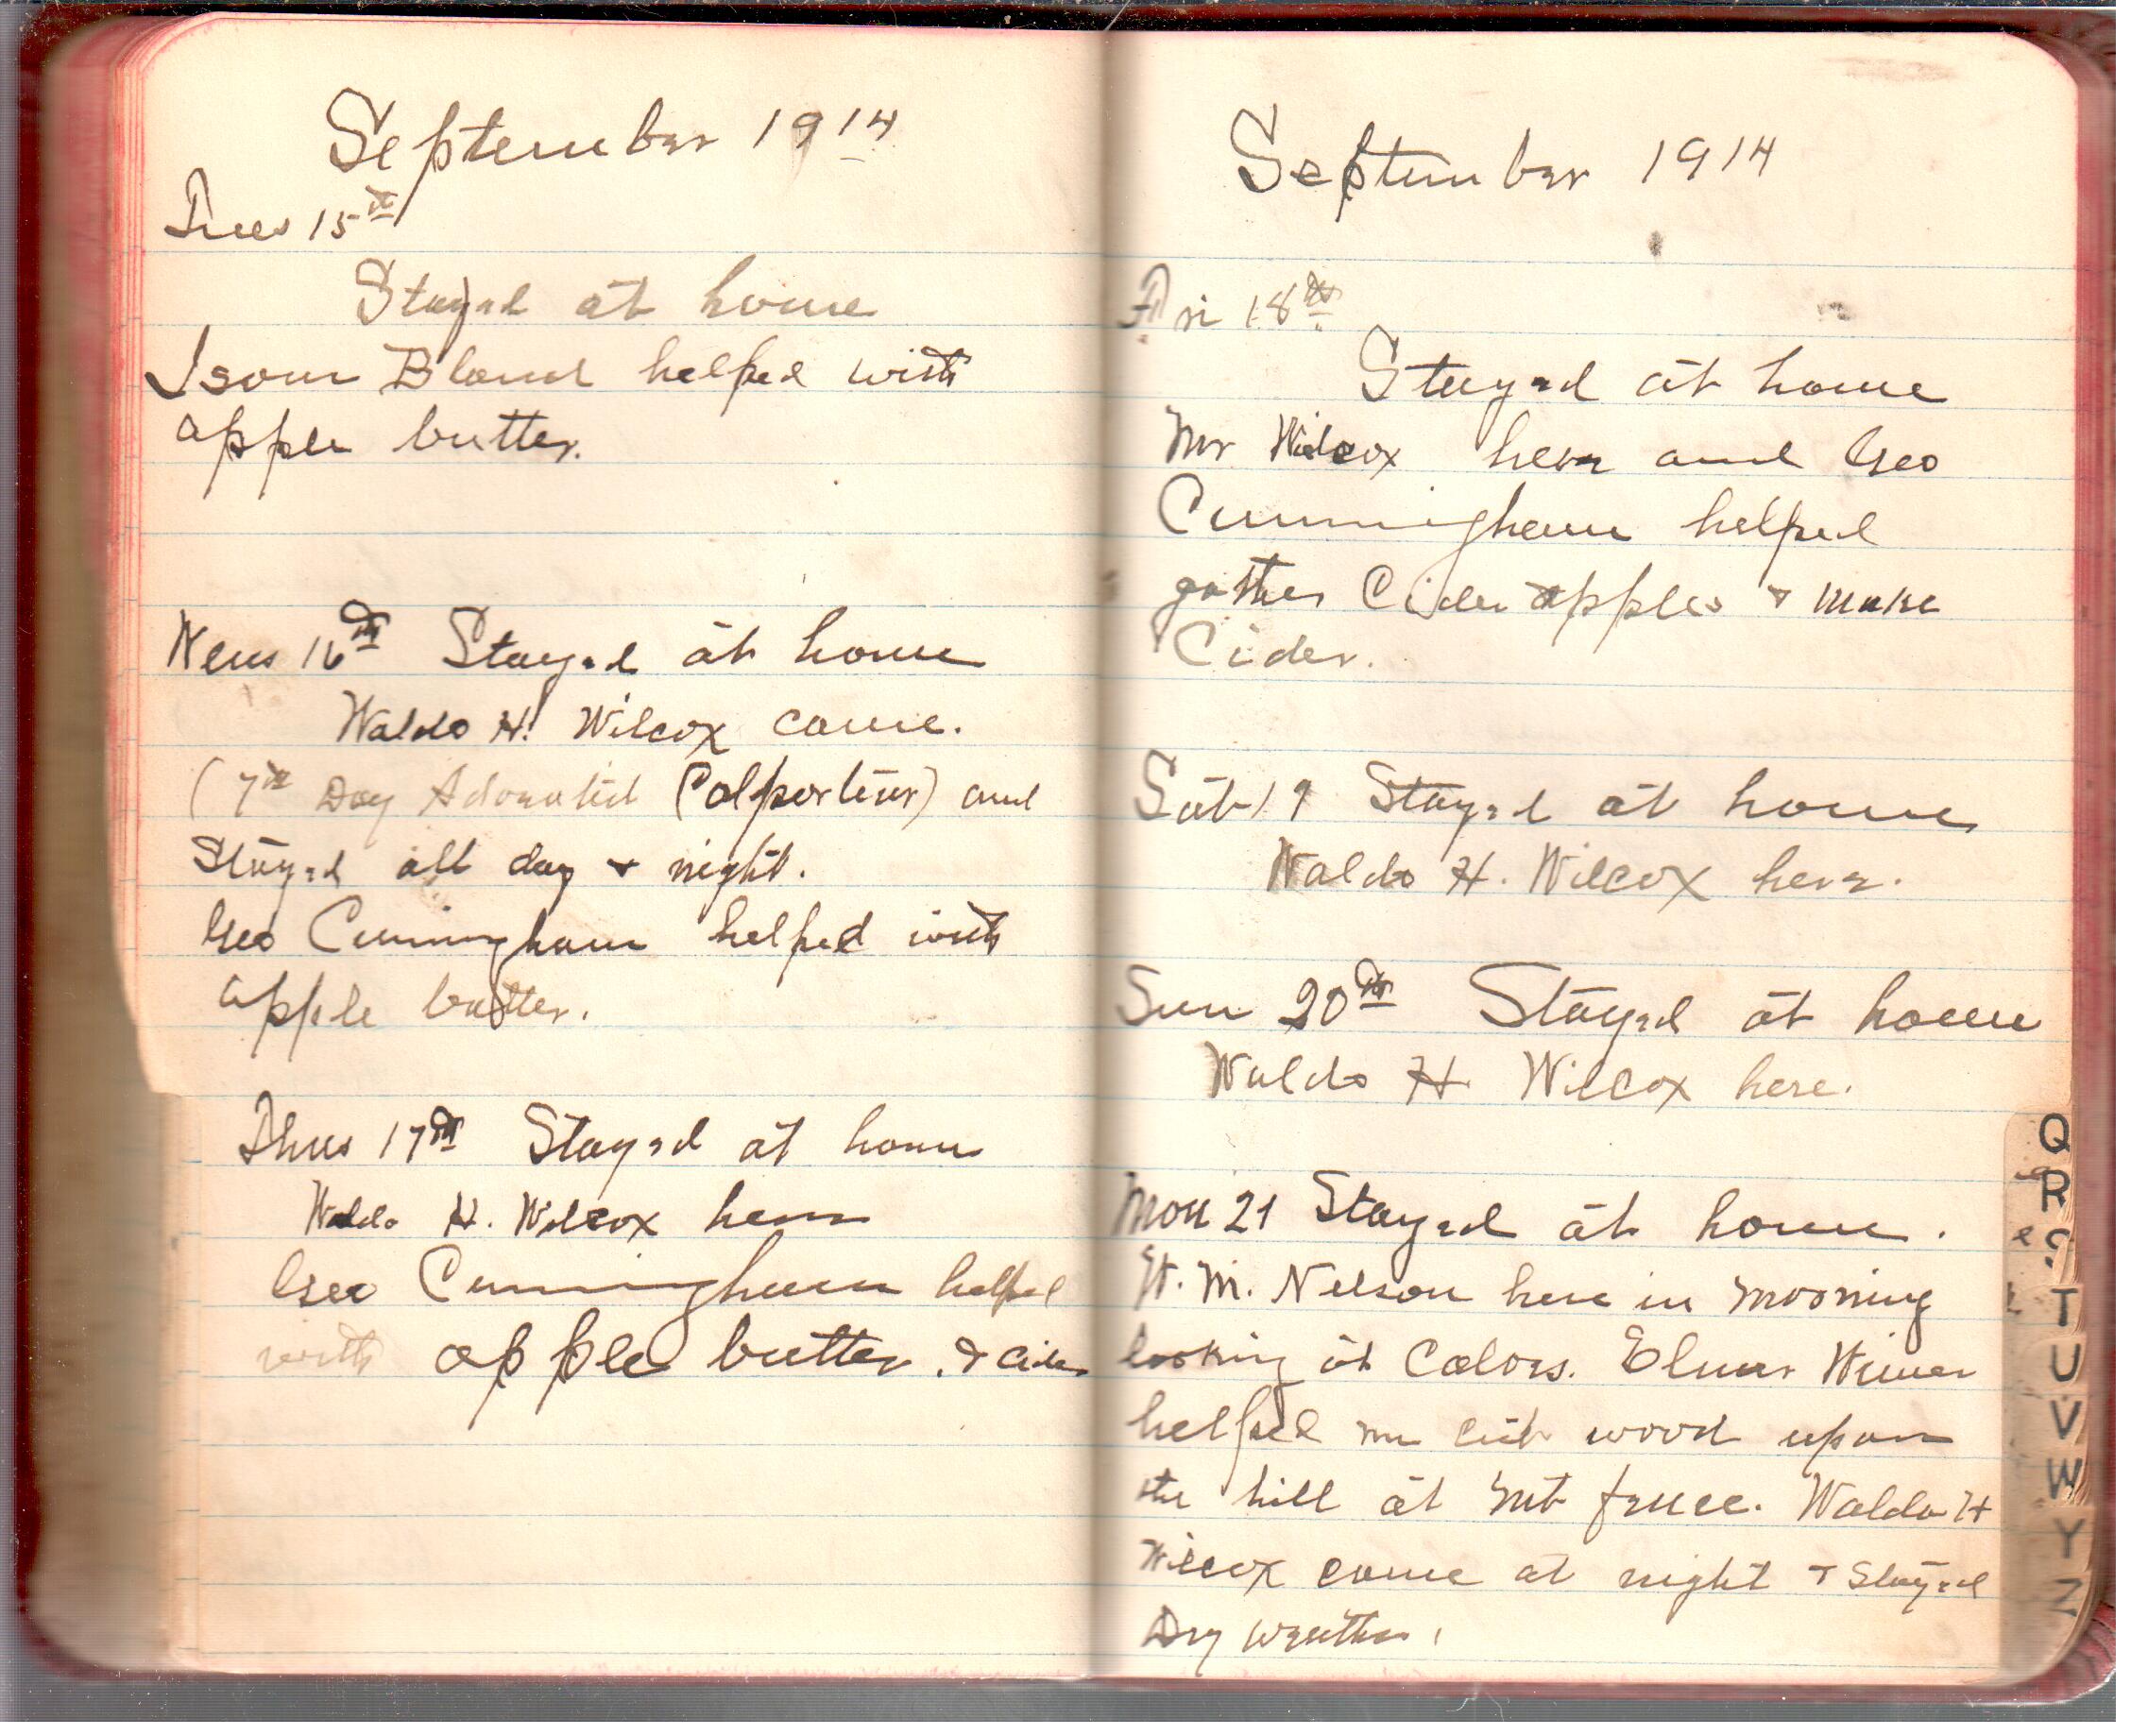 September 1914
Tues 15th
Stayed at home
Isom Bland helped with
apple butter.
Wens 16th Stayed at home
Waldo H. Wilcox came.
(7th Day Adventist Colporteur) and
Stayed all day & night.
Geo Cunningham helped with
apple butter.
Thus 17th Stayed at home
Waldo H. Wilcox here
Geo Cunningham helped
with apple butter. & Cider
September 1914
Fri 18th
Stayed at home
Mr Wilcox here and Geo
Cunningham helped
gather Cider apples & make
Cider.
Sat 19 Stayed at home
Waldo H. Wilcox here.
Sun 20th Stayed at home
Waldo H Wilcox here.
Mon 21 Stayed at home.
W. M. Nelson here in morning
looking at Colors. Elmer
helped me cut wood upon
the hill at fence. Waldo H
Wilcox came at night & Stayed
Dry weather.
Q
R
S
T
U
V
W
Y
Z